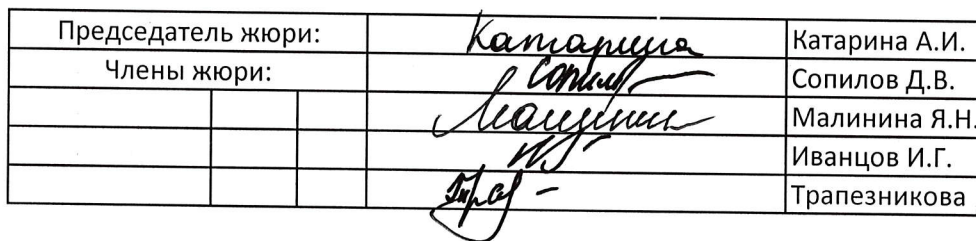 Председатель жюри: Катарина Катарина А.И.
Члены жюри: Сопил Сопилов Д.В.
Малинина Я.Н.
Иванцов И.Г.
Трапезникова